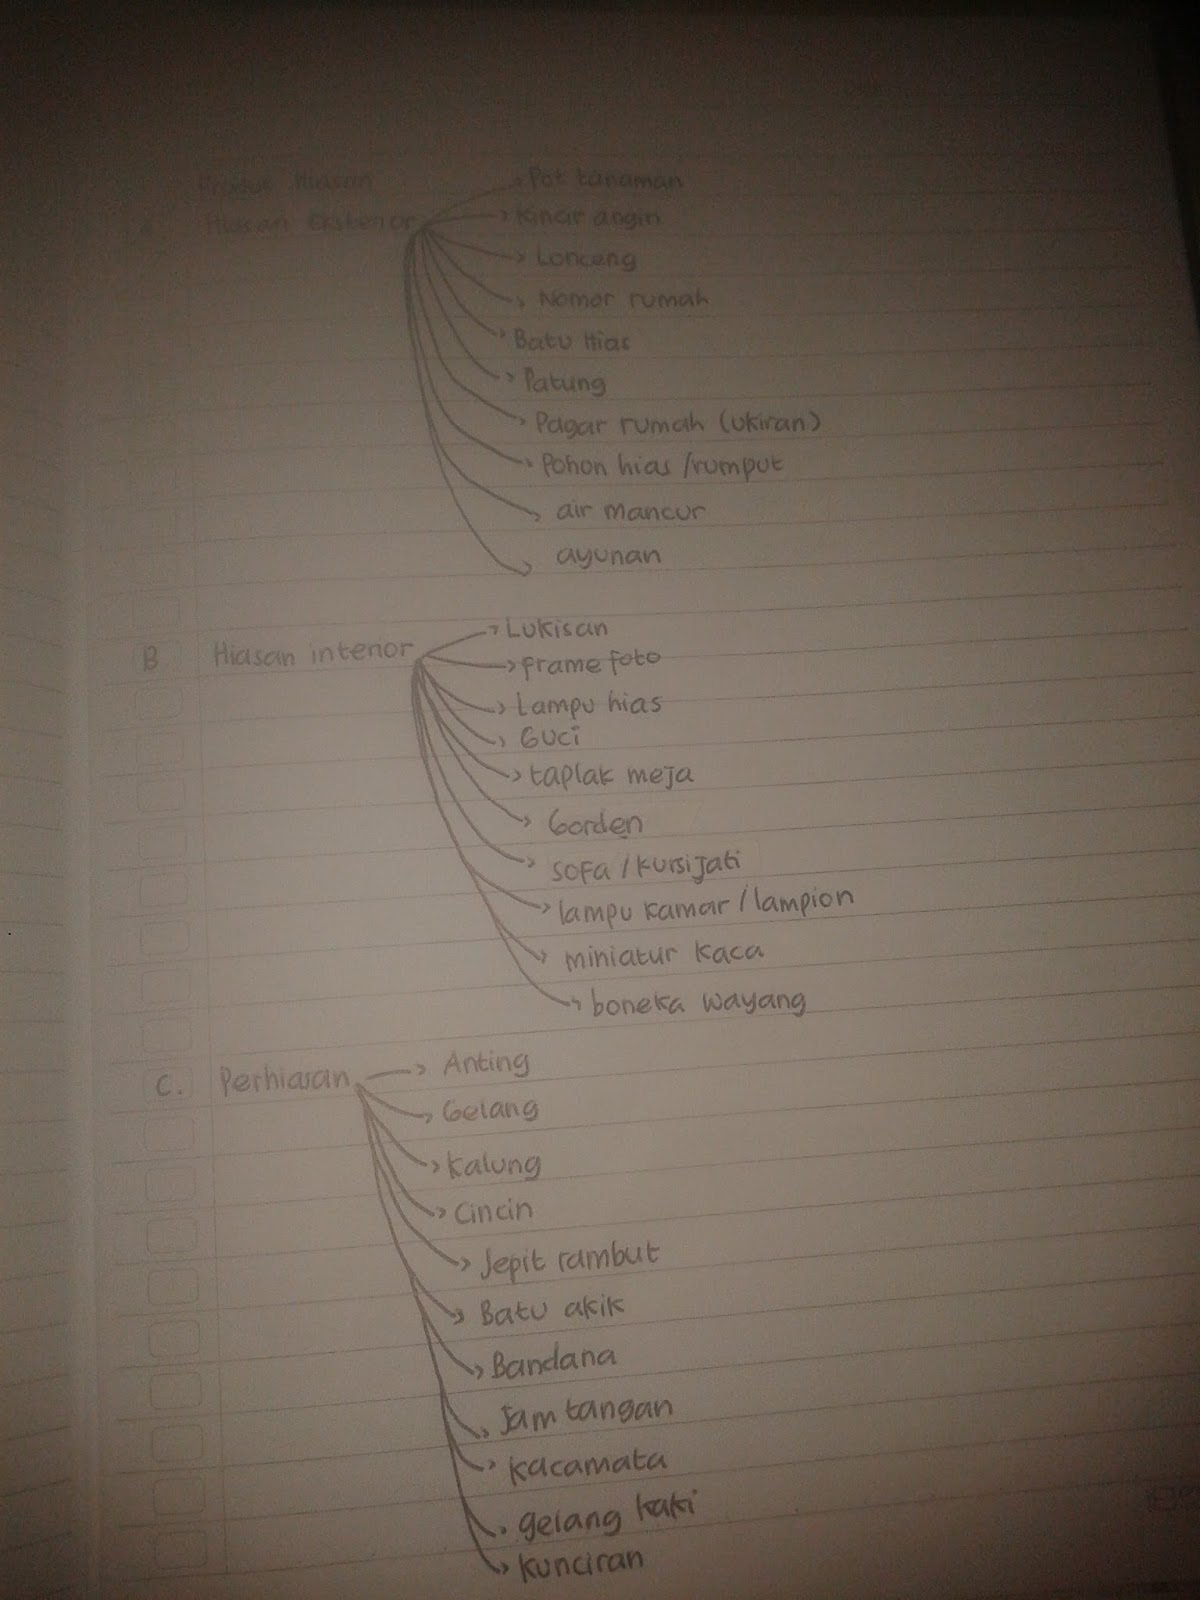 Produk Hiasan
Hiasan Eksterior
Pot tanaman
Kincir angin
Lonceng
Nomor rumah
Batu Hias
Patung
Pagar rumah (ukiran)
Pohon hias/rumput
air mancur
ayunan
B Hiasan interior
Lukisan
frame foto
Lampu hias
Guci
taplak meja
Gorden
sofa/kursi jati
lampu kamar/lampion
miniatur kaca
boneka wayang
C. Perhiasan
Anting
Gelang
Kalung
Cincin
Jepit rambut
Batu akik
Bandana
Jam tangan
kacamata
gelang kaki
kunciran